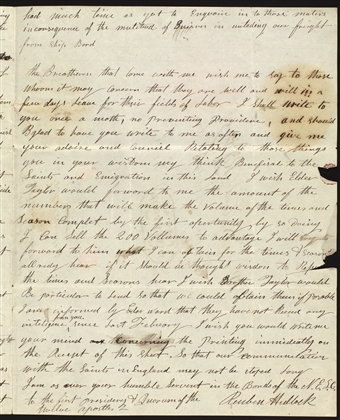 had much time as yet to Enquire in to those matters
inconsequence of the multitud of Buisness in unloding our fraight
from Ship Bord
The Breatheren that come with me wish me to say to those
whom it may concern that they are well and will in a
few days Leave for their fields of Labor I Shall write to
you once a month, no Preventing Providence, and should
B glad to have you write to me as often and give me
your advise and Council Relating to those things
you in your wisdom my think Benifisal to the
Saints and Emigration in this Land I wish Elder
Taylor would forward to me the amount of the
numbers that will make the Volume of the times and
Season Complet by the first opertunity, by so doing
I can Sell the 200 Vollumes to advantage I will
forward to him what I can obtain for the times & seasons
allready hear if it should be thought wisdom to
the times and Seasons hear I wish Brother Taylor would
Be perticular to Send So that we could obtain them if posable
I am informed by Elder Ward that they have not Receved any
from you
inteligence since last February I wish you would write me
your mind Concerning the Printing immidiatly on
the Receipt of this Sheet So that our communication
with the Saints in England may not be stoped Long
I am as ever your humble Servent in the Bonds of the N. & E. C.
to the first presidency & Quorum of the
twelve apostles
Reuben Hedlock